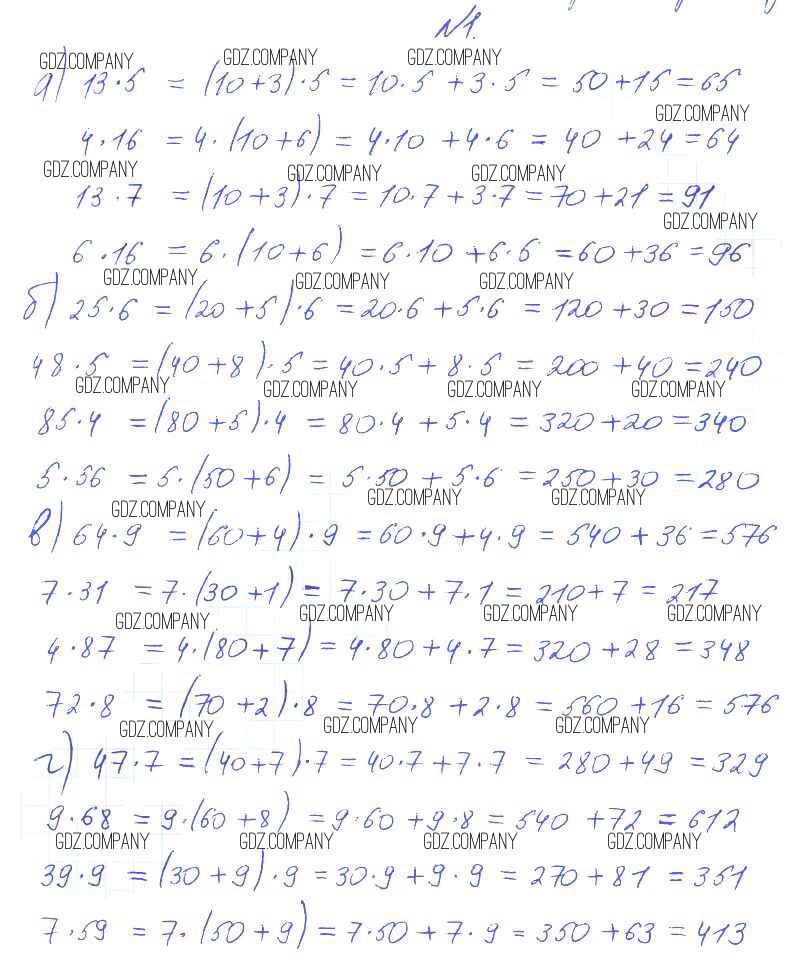 №1.
GDZ.COMPANY GDZ.COMPANY GDZ.COMPANY
а) 13·5 = (10+3)·5 = 10·5 + 3·5 = 50+15=65
GDZ.COMPANY
4·16 = 4·(10+6) = 4·10 + 4·6 = 40 +24=64
GDZ.COMPANY GDZ.COMPANY GDZ.COMPANY
13·7 = (10+3)·7 = 10·7 + 3·7 = 70+21 = 91
GDZ.COMPANY
6·16 = 6·(10+6) = 6·10 + 6·6 = 60 + 36 = 96
GDZ.COMPANY GDZ.COMPANY GDZ.COMPANY
б) 25·6 = (20+5)·6 = 20·6 + 5·6 = 120 +30 = 150
48·5 = (40+8)·5 = 40·5 + 8·5 = 200 +40 = 240
GDZ.COMPANY GDZ.COMPANY GDZ.COMPANY GDZ.COMPANY
85·4 = (80+5)·4 = 80·4 + 5·4 = 320+20 = 340
5·56 = 5·(50+6) = 5·50 + 5·6 = 250+30 = 280
GDZ.COMPANY GDZ.COMPANY GDZ.COMPANY
в) 64·9 = (60+4)·9 = 60·9+4·9 = 540 + 36 = 576
7·31 = 7·(30+1) = 7·30 + 7·1 = 210+7 = 217
GDZ.COMPANY GDZ.COMPANY GDZ.COMPANY GDZ.COMPANY
4·87 = 4·(80+7) = 4·80+4·7 = 320 +28 = 348
72·8 = (70+2)·8 = 70·8 + 2·8 = 560 +16 = 576
GDZ.COMPANY GDZ.COMPANY GDZ.COMPANY
г) 47·7 = (40+7)·7 = 40·7 +7·7 = 280+49 = 329
9·68 = 9·(60+8) = 9·60 +9·8 = 540 +72 = 612
GDZ.COMPANY GDZ.COMPANY GDZ.COMPANY GDZ.COMPANY
39·9 = (30+9)·9 = 30·9 +9·9 = 270 +81 = 351
7·59 = 7·(50+9) = 7·50+7·9 = 350 +63 = 413